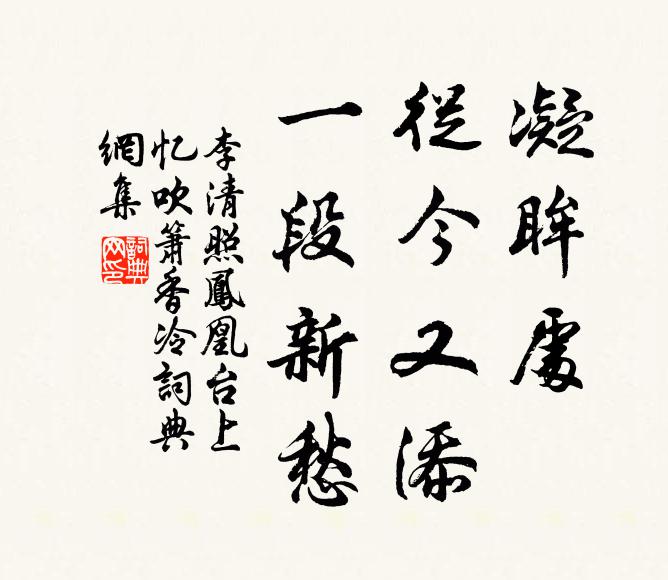 凝眸處
從今又添
一段新愁
李清照鳳凰台上
忆吹簫香冷詞典
網集
詞典
网印